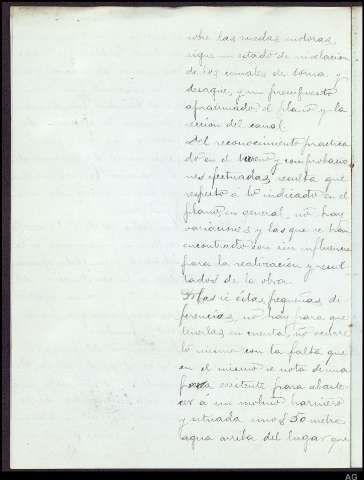 sobre las ruedas motoras,
sigue un estado de nivelación
de los canales de toma y
desague, y un presupuesto
aproximado el plano y la
sección del canal.
Del reconocimiento practica-
do en el terreno y comprobacio-
nes efectuadas, resulta que
respecto á lo indicado en el
plano, en general, no hay
variaciones y las que se han
encontrado son sin influencia
para la realización y resul-
tados de la obra.
Mas si éstas pequeñas di-
ferencias, no hay para que
tenerlas en cuenta, no ocurre
lo mismo con la falta que
en el mismo se nota de una
presa existente para abaste-
cer á un molino harinero
y situada unos 50 metros
agua arriba del lugar que
AG